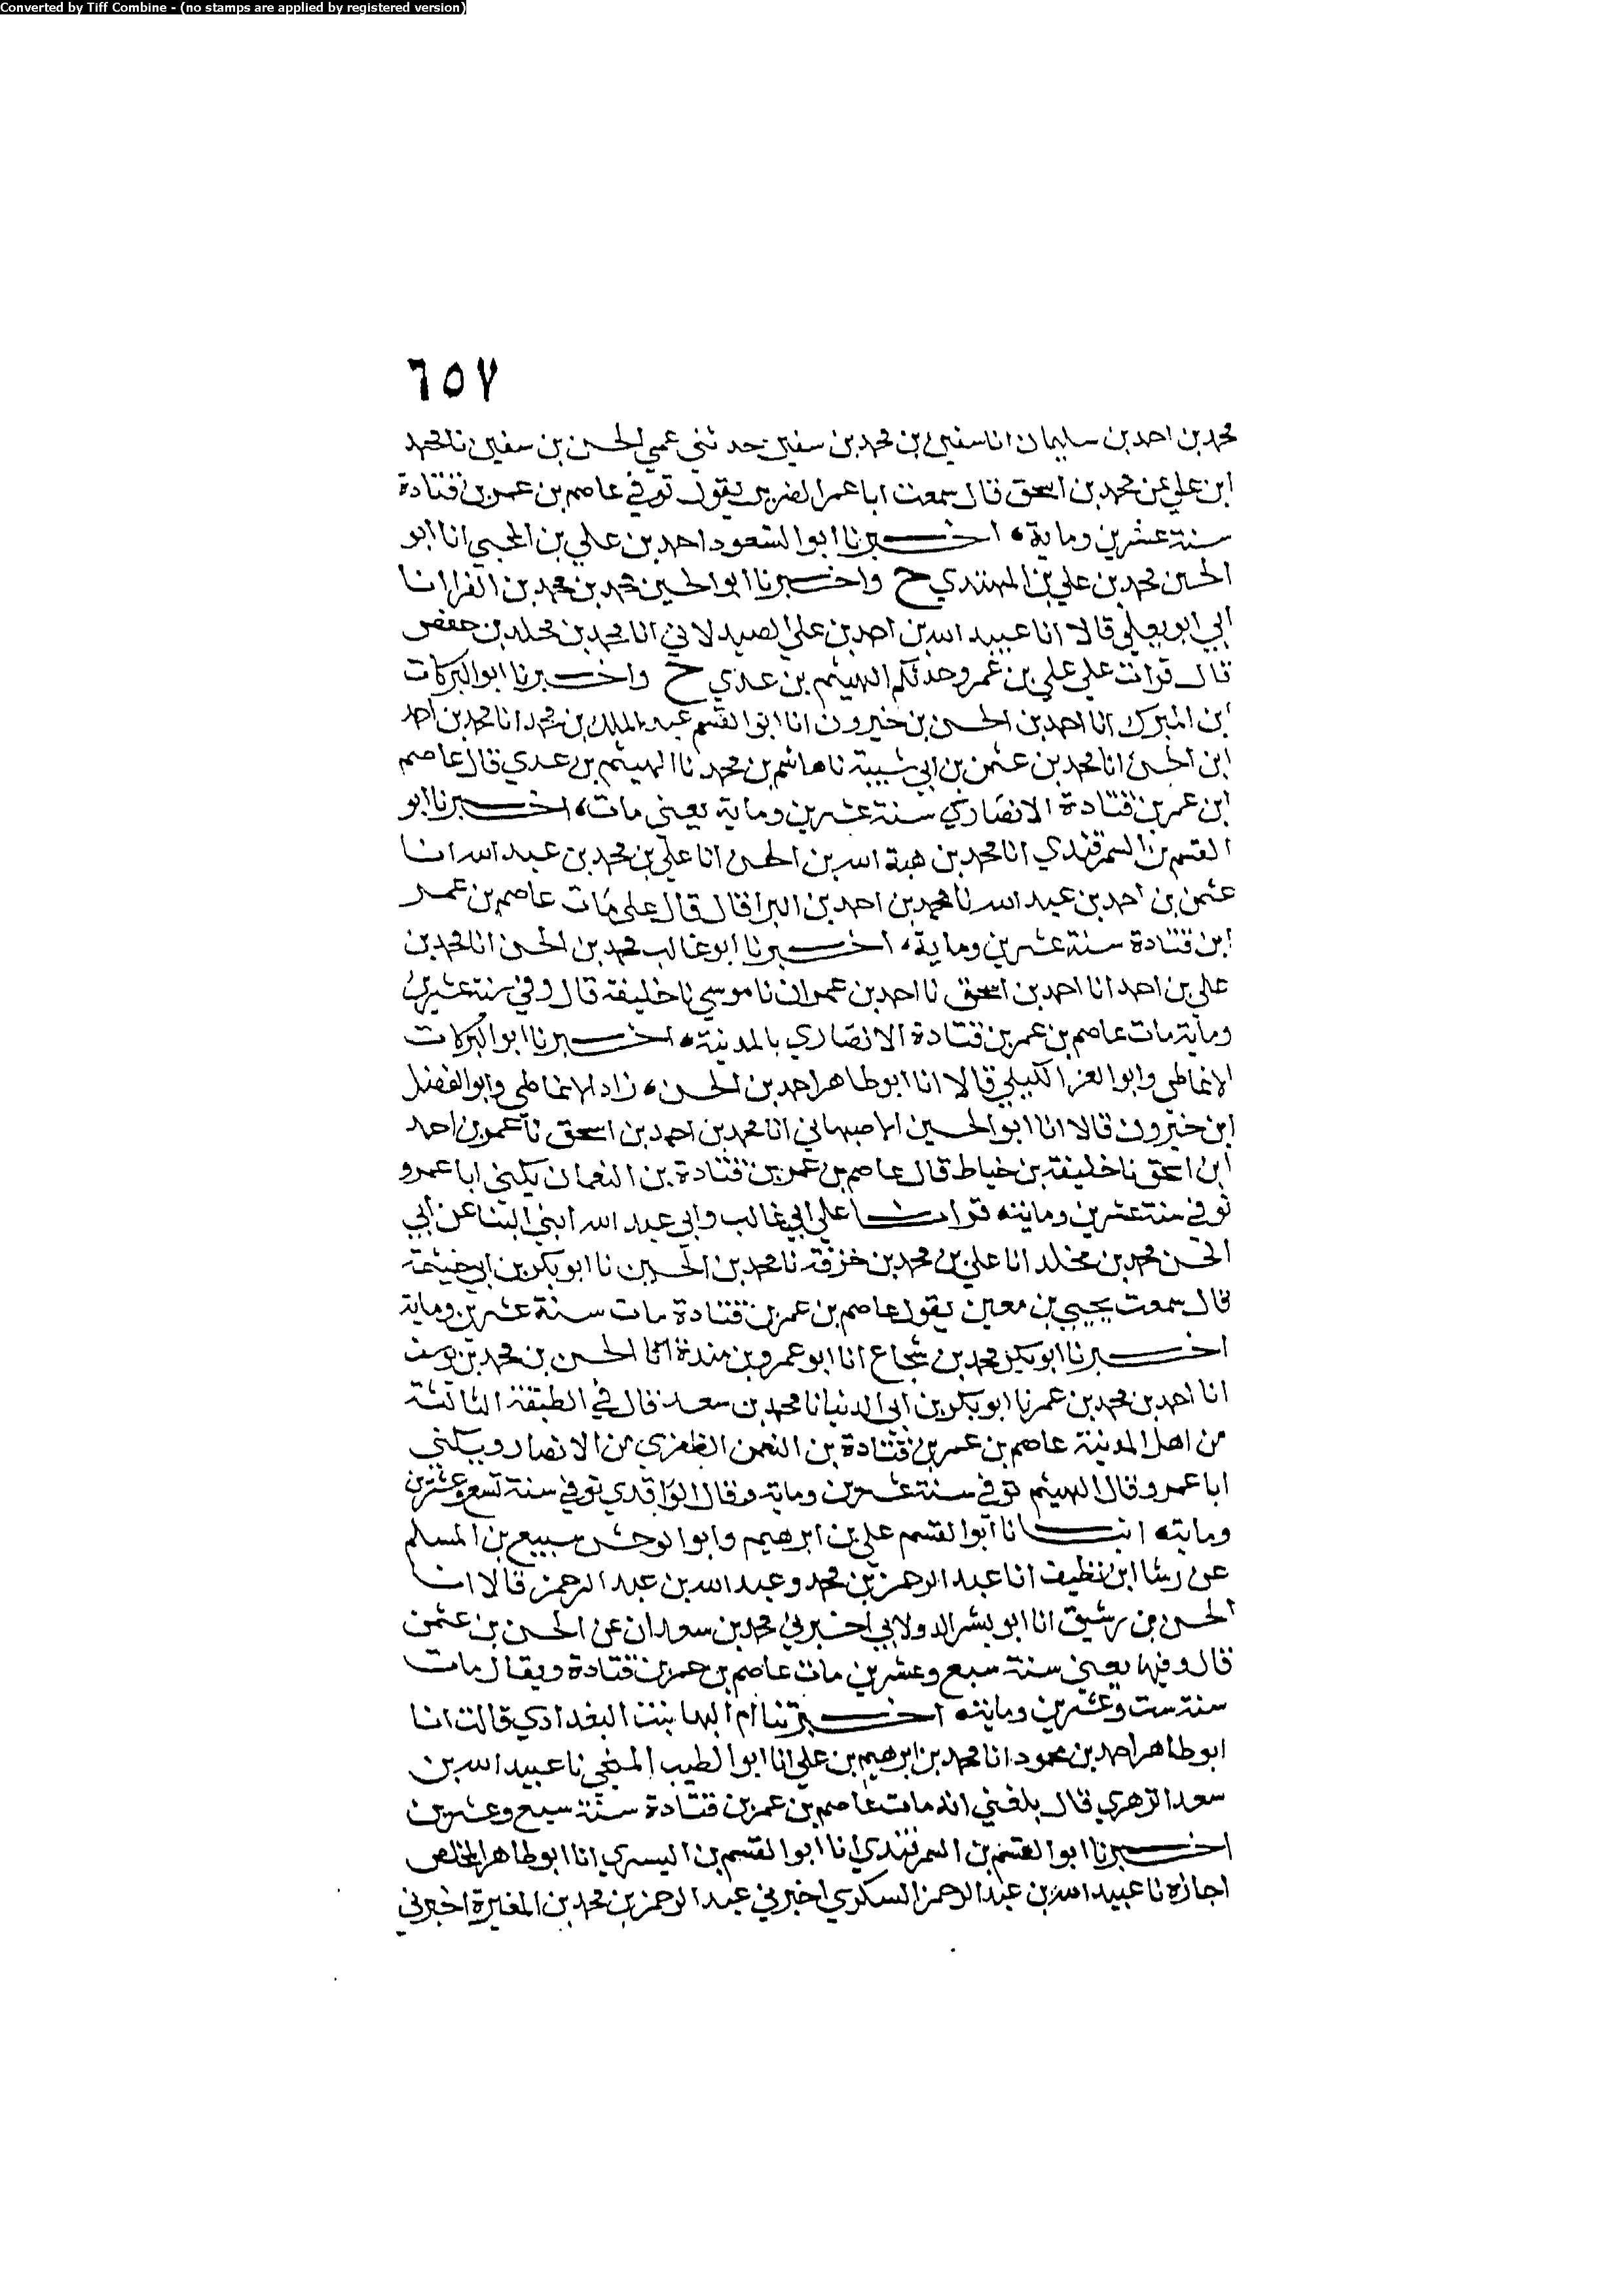 Converted by Tiff Combine - (no stamps are applied by registered version)
٦٥٧
محمد بن احمد بن سليمان انا سفين بن محمد بن سفين حدثني عمي الحسن بن سفين نا محمد
ابن علي عن محمد بن اسحق قال سمعت ابا عمر الضرير يقول توفي عاصم بن عمر بن قتادة
سنة عشرين وماية، اخبرنا ابو السعود احمد بن علي بن المجلي انا ابو
الحسين محمد بن علي بن المهتدي ح واخبرنا ابو الحسين محمد بن محمد بن الفرا انا
ابي ابو يعلي قالا انا عبيد الله بن احمد بن علي الصيدلاني انا محمد بن مخلد بن حفص
قال قرات علي علي بن عمرو حدثكم الهيثم بن عدي ح واخبرنا ابو البركات
ابن المبرك انا احمد بن الحسن بن خيرون انا ابو القسم عبد الملك بن محمد انا محمد بن احمد
ابن الحسن انا محمد بن عثمن بن ابي شيبة نا هاشم بن محمد نا الهيثم بن عدي قال عاصم
ابن عمر بن قتادة الانصاري سنة عشرين وماية يعني مات، اخبرنا ابو
القسم بن السمرقندي انا محمد بن هبة الله بن الحسن انا علي بن محمد بن عبد الله انا
عثمن بن احمد بن عبد الله نا محمد بن احمد بن البرا قال قال علي مات عاصم بن عمر
ابن قتادة سنة عشرين وماية، اخبرنا ابو غالب محمد بن الحسن انا محمد بن
علي بن احمد انا احمد بن اسحق نا احمد بن عمران نا موسي نا خليفة قال وفي سنة عشرين
وماية مات عاصم بن عمر بن قتادة الانصاري بالمدينة، اخبرنا ابو البركات
الانماطي وابو العز الكيلي قالا انا ابو طاهر احمد بن الحسن، زاد الانماطي وابو الفضل
ابن خيرون قالا انا ابو الحسين الاصبهاني انا محمد بن احمد بن اسحق نا عمر بن احمد
ابن اسحق نا خليفة بن خياط قال عاصم بن عمر بن قتادة بن النعمان يكني ابا عمرو
توفي سنة عشرين وماية، قرات علي ابي غالب وابي عبد الله ابني البنا عن ابي
الحسن محمد بن مخلد انا علي بن محمد بن خزفة نا محمد بن الحسين نا ابو بكر بن ابي خيثمة
قال سمعت يحيي بن معين يقول عاصم بن عمر بن قتادة مات سنة عشرين وماية
اخبرنا ابو بكر محمد بن شجاع انا ابو عمرو بن مندة انا الحسن بن محمد بن يوسف
انا احمد بن محمد بن عمر نا ابو بكر بن ابي الدنيا نا محمد بن سعد قال في الطبقة الثالثة
من اهل المدينة عاصم بن عمر بن قتادة بن النعمن الظفري من الانصار ويكني
ابا عمرو قال الهيثم توفي سنة عشرين وماية وقال الواقدي توفي سنة تسع وعشرين
وماية، انبانا ابو القسم علي بن ابرهيم وابو الوحش سبيع بن المسلم
عن رشا ابن نظيف انا عبد الرحمن بن محمد وعبد الله بن عبد الرحمن قالا انا
الحسن بن رشيق انا ابو بشر الدولابي اخبرني محمد بن سعدان عن الحسن بن عثمن
قال وفيها يعني سنة سبع وعشرين مات عاصم بن عمر بن قتادة ويقال مات
سنة ست وعشرين وماية، اخبرتنا ام البها بنت البغدادي قالت انا
ابو طاهر احمد بن محمود انا محمد بن ابرهيم بن علي انا ابو الطيب المنبجي نا عبيد الله بن
سعد الزهري قال بلغني انه مات عاصم بن عمر بن قتادة سنة سبع وعشرين
اخبرنا ابو القسم بن السمرقندي انا ابو القسم بن البسري انا ابو طاهر المخلص
اجازه نا عبيد الله بن عبد الرحمن السكري اخبرني عبد الرحمن بن محمد بن المغيرة اخبرني